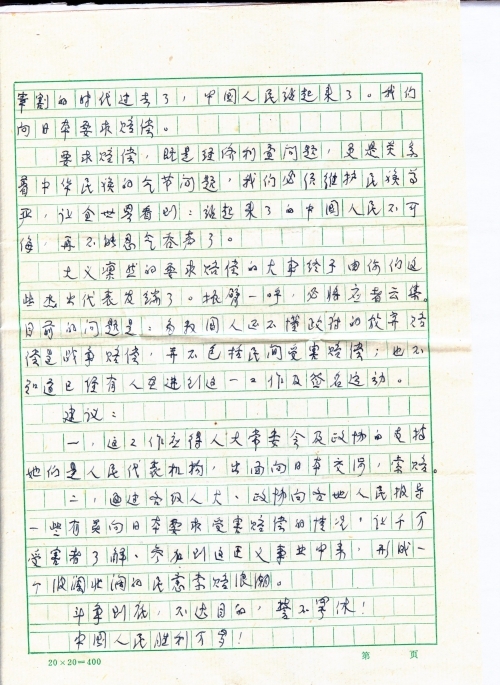 宰割的时代过去了，中国人民站起来了。我们
向日本要求赔偿。
要求赔偿，既是经济利益问题，更是关系
着中华民族的气节问题，我们必须维护民族尊
严，让全世界看到：站起来了的中国人民不可
侮，再不能忍气吞声了。
大义凛然的要求赔偿的大事终于由你们这
些杰出代表发端了。振臂一呼，必将应者云集。
目前的问题是：多数国人还不懂政府的放弃赔
偿是战争赔偿，并不包括民间受害赔偿；也不
知道已经有人在进到这一工作及签名运动。
建议：
一，这工作应得人大常委会及政协的支持
她们是人民代表机构，出面向日本交涉，索赔。
二，通过各级人大、政协向各地人民报导
一些有关向日本要求受害赔偿的情况，让千万
受害者了解、参加到这正义事业中来，形成一
个波澜壮阔的民意索赔浪潮。
斗争到底，不达目的，誓不罢休！
中国人民胜利万岁！
20×20=400
第 页